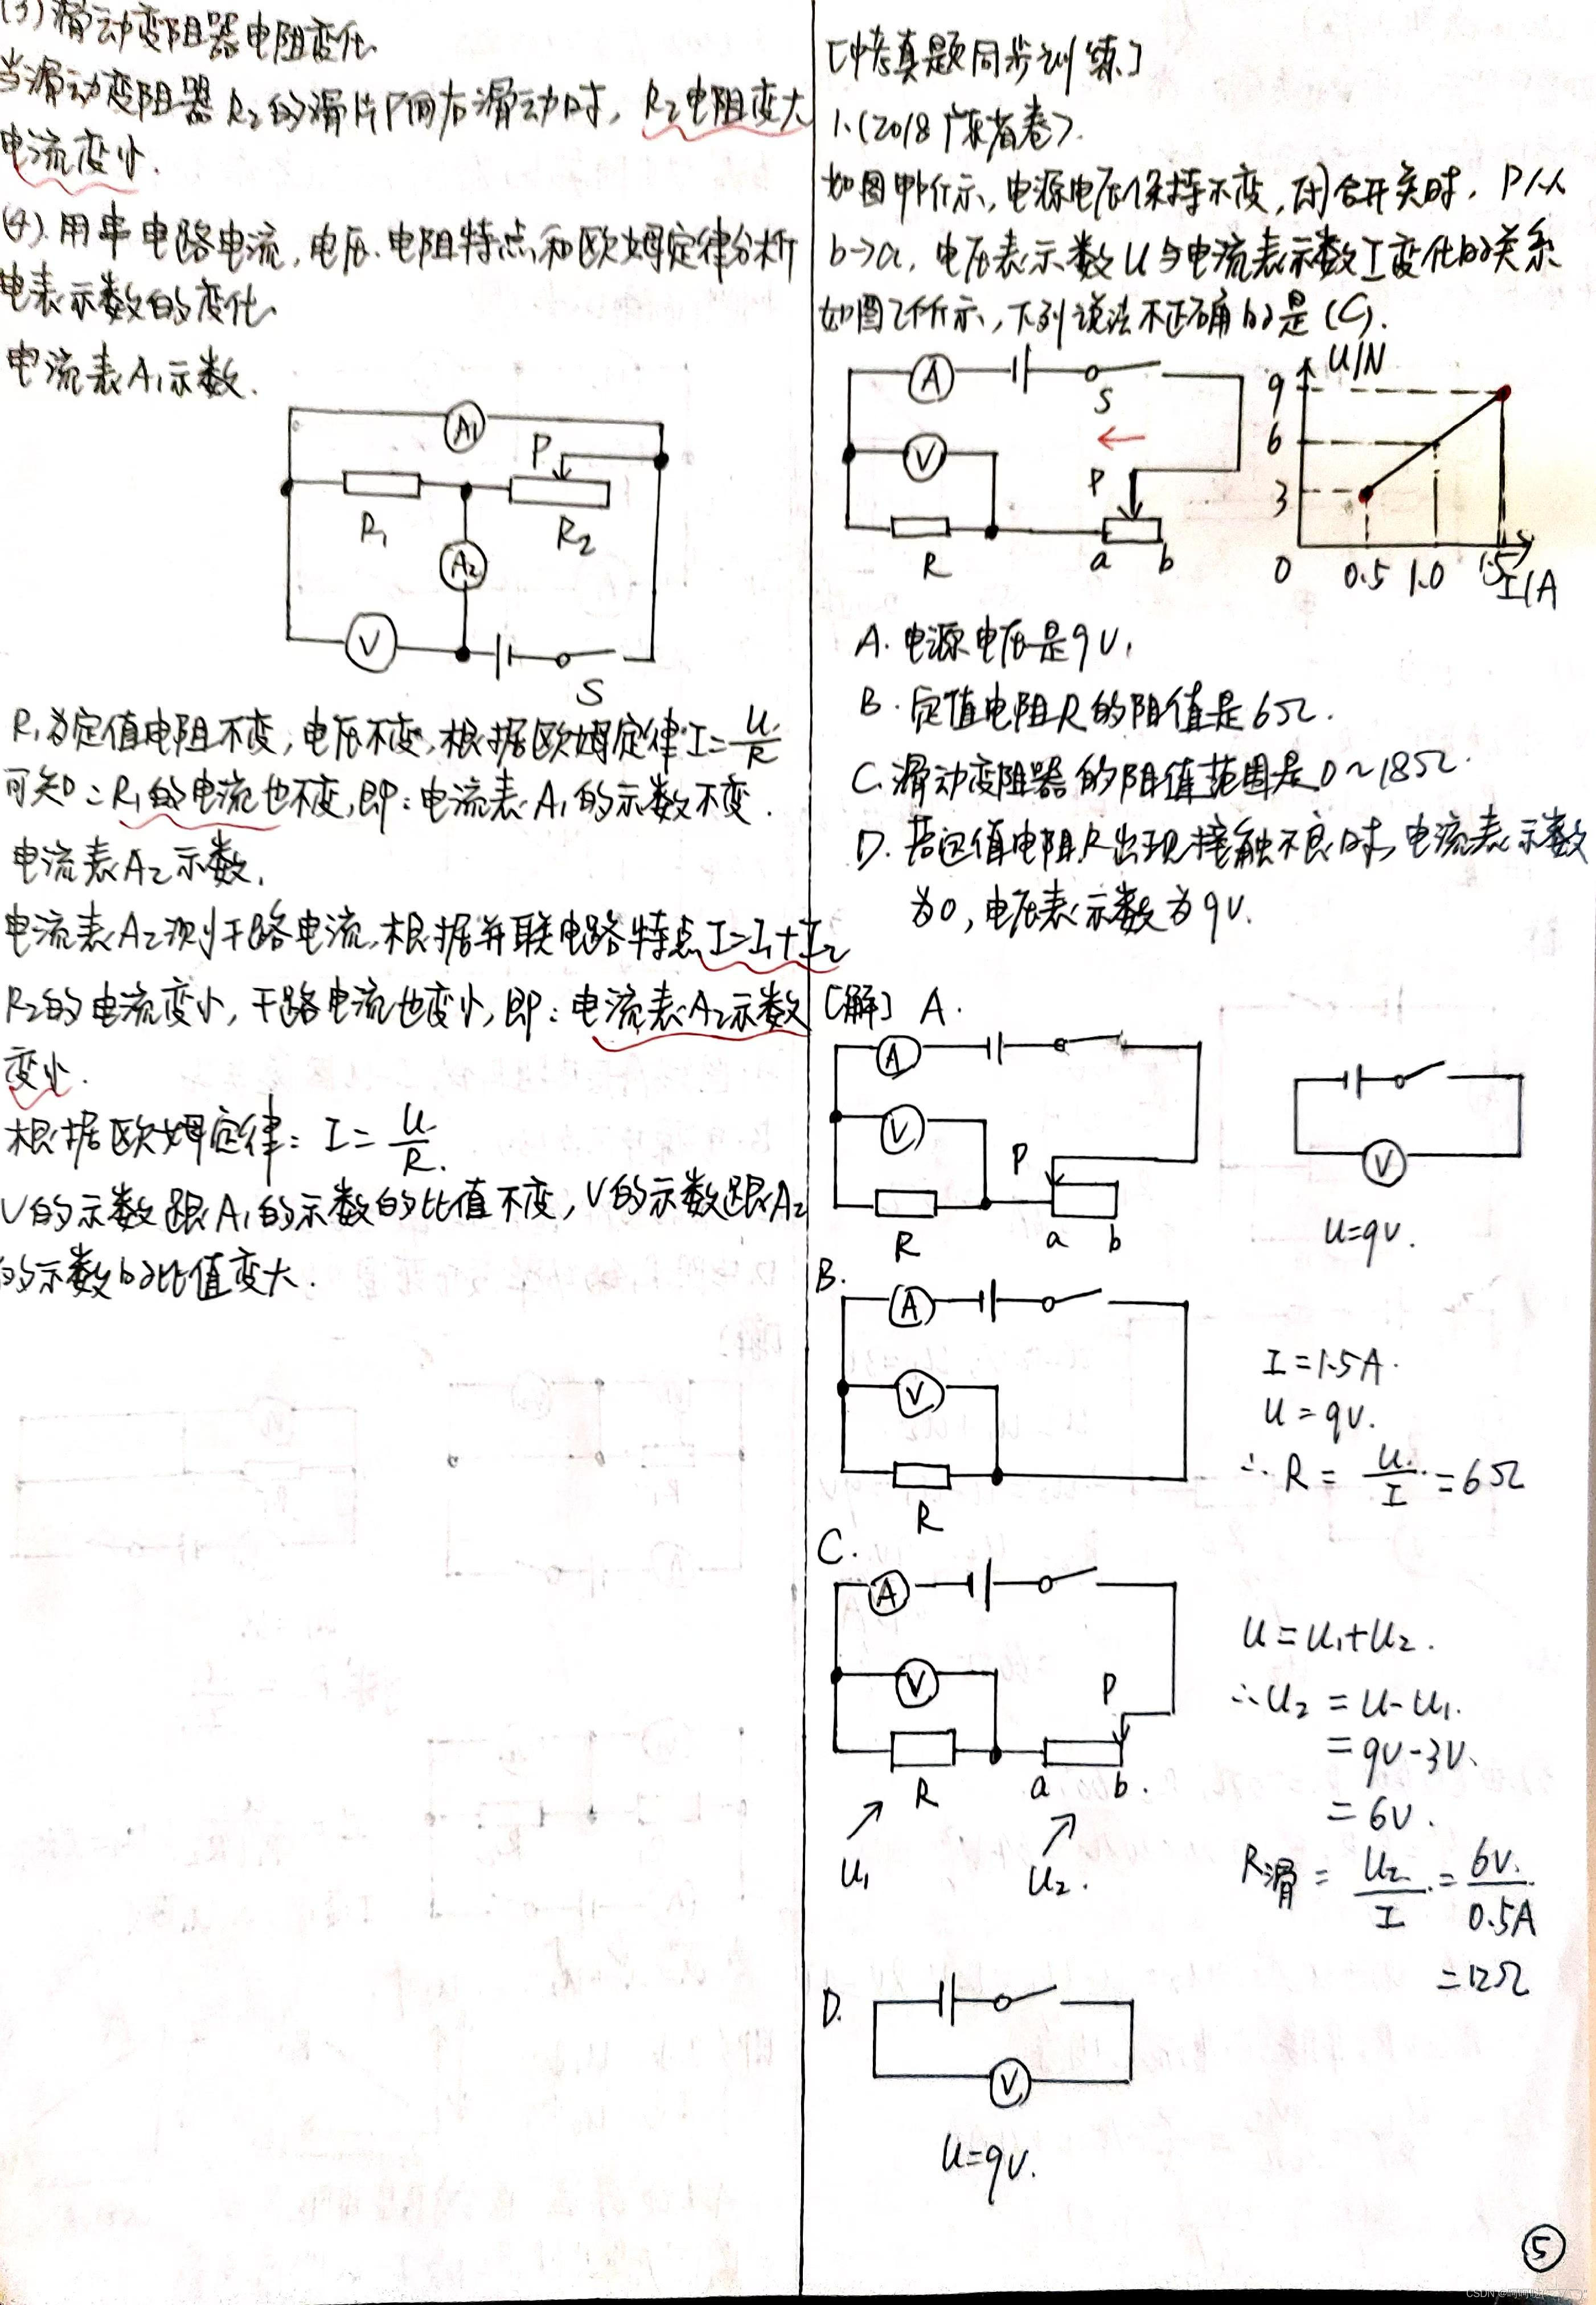 (3) 滑动变阻器电阻变化
当滑动变阻器R₂的滑片P向右滑动时，R₂电阻变大
电流变小.
(4).用串电路电流,电压.电阻特点和欧姆定律分析
电表示数的变化.
电流表A₁示数.
A₁
P
R₁
R₂
A₂
V
S
R₁为定值电阻不变,电压不变,根据欧姆定律I=U/R
可知:R₁的电流也不变,即:电流表A₁的示数不变.
电流表A₂示数.
电流表A₂测干路电流,根据并联电路特点I=I₁+I₂
R₂的电流变小,干路电流也变小,即:电流表A₂示数
变小.
根据欧姆定律: I=U/R.
V的示数跟A₁的示数的比值不变,V的示数跟A₂
的示数的比值变大.
[中考真题同步训练]
1.(2018广东省卷).
如图甲所示,电源电压保持不变,闭合开关时,P从
b→a,电压表示数U与电流表示数I变化的关系
如图乙所示,下列说法不正确的是(C).
A
S
V
P
R
a
b
U/V
9
6
3
0
0.5
1.0
1.5
I/A
A.电源电压是9V.
B.定值电阻R的阻值是6Ω.
C.滑动变阻器的阻值范围是0~18Ω.
D.若定值电阻R出现接触不良时,电流表示数
为0,电压表示数为9V.
[解] A.
A
V
P
R
a
b
V
U=9V.
B.
A
V
R
I=1.5A.
U=9V.
∴R=U/I=6Ω
C.
A
V
P
R
a
b.
U₁
U₂.
U=U₁+U₂.
∴U₂=U-U₁.
=9V-3V.
=6V.
R滑=U₂/I=6V/0.5A
=12Ω
D.
V
U=9V.
⑤